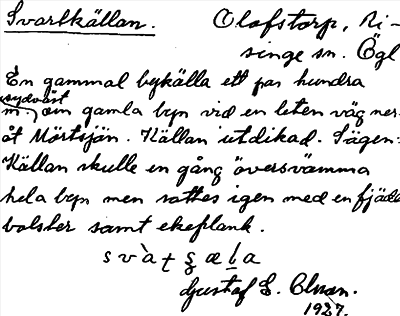 Svartkällan. Olofstorp, Ri-
singe sn. Ögl
En gammal bykälla ett par hundra
sydväst
m. om gamla byn vid en liten väg ner
åt Mörtsjön. Källan utdikad. Sägen:
Källan skulle en gång översvämma
hela byn men sattes igen med en fjäder
bolster samt ekeplank.
Gustaf E.
1927.